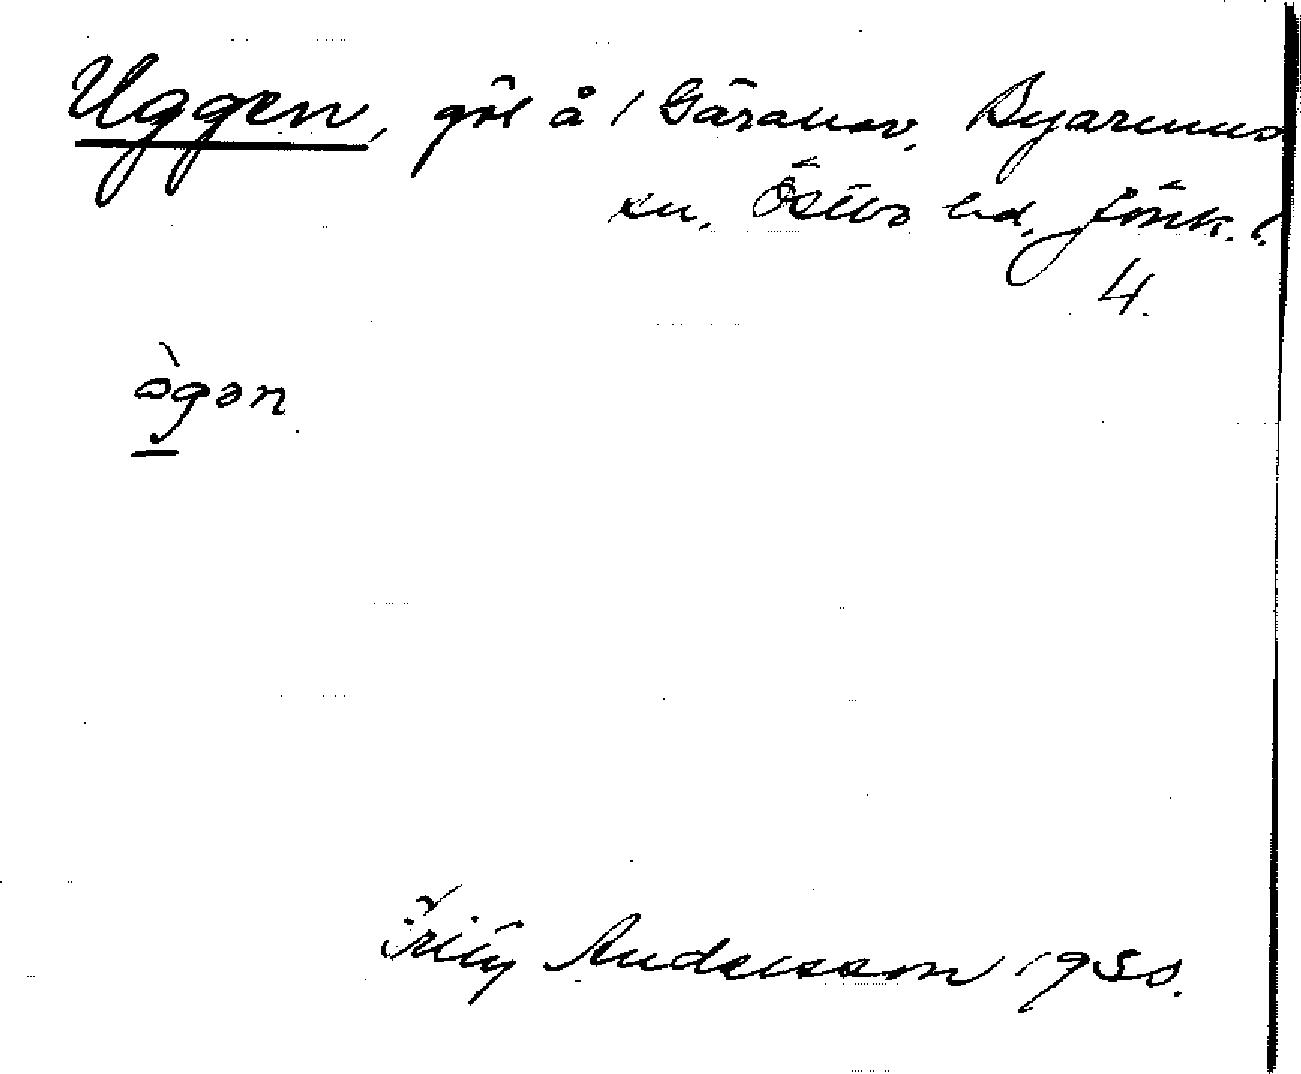 Uggen, göl å / Gäranov, Byarums
sn, Östbo hd, Jönk. l.
4.
ògən
Frity Andersson 1930.